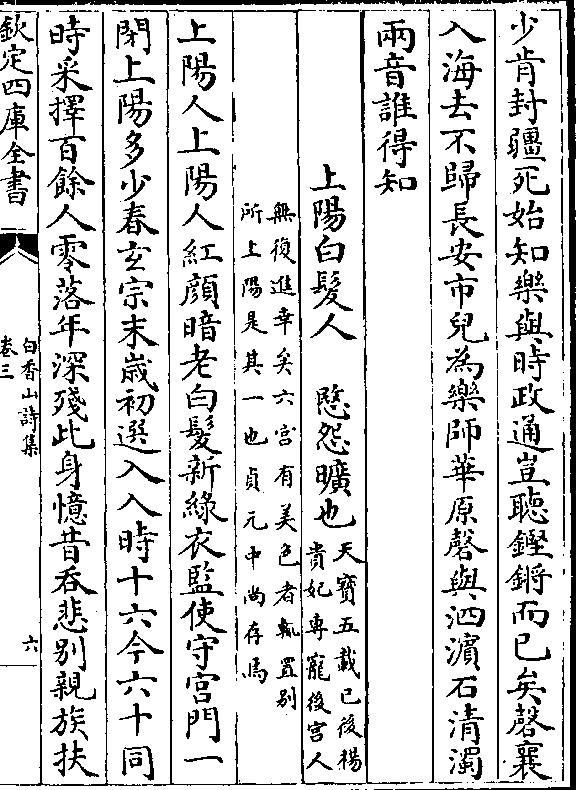 少肯封疆死始知樂與時政通豈聽鏗鏘而已矣磬襄
入海去不歸長安市兒為樂師華原磬與泗濵石清濁
兩音誰得知
上陽白髮人　愍怨曠也天寶五載已後楊
貴妃專寵後宫人
無復進幸矣六宫有美色者輒置别
所上陽是其一也貞元中尚存焉
上陽人上陽人紅顔暗老白髮新緑衣監使守宫門一
閉上陽多少春玄宗末歲初選入入時十六今六十同
時采擇百餘人零落年深殘此身憶昔吞悲别親族扶
欽定四庫全書
白香山詩集
卷三
六